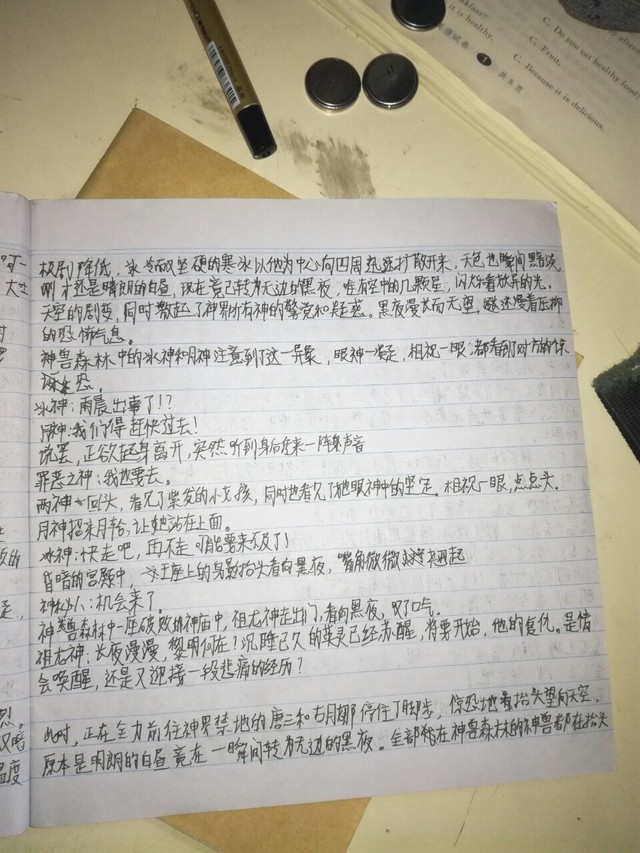 fast"
it is healthy.
C. Do you eat healthy food
C. Fruit.
C. Because it is delicious.
语试卷 1 共8页
极剧降低，冰冷而又坚硬的寒冰以他为中心向四周迅速扩散开来，天色也瞬间黯淡，
刚才还是晴朗的白昼，现在竟已转为无边的黑夜，唯有空中的几颗星，闪烁着的光。
天空的剧变，同时激起了神界所有神的警觉和疑惑。黑夜漫长而无望，还漫着
的恐怖气息。
神兽森林中的冰神和月神注意到了这一异象，眼神一凝，相视一眼，都看到对方的惊
讶
冰神：雨晨出事了！？
月神：我们得赶快过去！
说罢，正欲起身离开，突然听到身后传来一阵声音
罪恶之神：我也要去。
两神一回头，看见了紫发的小女孩，同时也看见了她眼神中的坚定。相视一眼，点点头。
月神招来月轮，让她站在上面。
冰神：快走吧，再不走可能要来不及了！
昏暗的宫殿中，王座上的身影抬头看向黑夜，嘴角微微翘起
神秘人：机会来了。
神兽森林中一座破败的神庙中，祖龙神走出门，看向黑夜，叹了口气。
祖龙神：长夜漫漫，黎明何在！沉睡已久的英灵已经苏醒，将要开始，他的复仇。是情
会唤醒，还是又迎接一段悲痛的经历？
此时，正在全力前往神界禁地的唐三和古月娜停住了脚步，惊恐地抬头望向天空。
原本是明朗的白昼竟在一瞬间转为无边的黑夜。全部在神兽森林的神兽都在抬头
的
温度